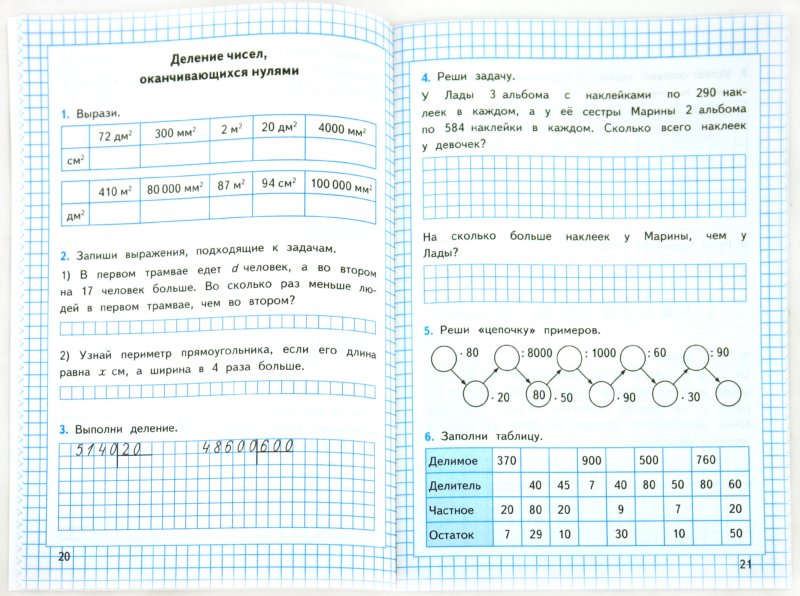 Деление чисел,
оканчивающихся нулями
1. Вырази.
72 дм² 300 мм² 2 м² 20 дм² 4000 мм²
см²
410 м² 80 000 мм² 87 м² 94 см² 100 000 мм²
дм²
2. Запиши выражения, подходящие к задачам.
1) В первом трамвае едет d человек, а во втором
на 17 человек больше. Во сколько раз меньше лю-
дей в первом трамвае, чем во втором?
2) Узнай периметр прямоугольника, если его длина
равна x см, а ширина в 4 раза больше.
3. Выполни деление.
5140 20 48600 600
20
4. Реши задачу.
У Лады 3 альбома с наклейками по 290 нак-
леек в каждом, а у её сестры Марины 2 альбома
по 584 наклейки в каждом. Сколько всего наклеек
у девочек?
На сколько больше наклеек у Марины, чем у
Лады?
5. Реши «цепочку» примеров.
· 80 : 8000 : 1000 : 60 : 90
· 20 80 · 50 · 90 · 30
6. Заполни таблицу.
Делимое 370 900 500 760
Делитель 40 45 7 40 80 50 80 60
Частное 20 80 20 9 7 20
Остаток 7 29 10 30 10 50
21